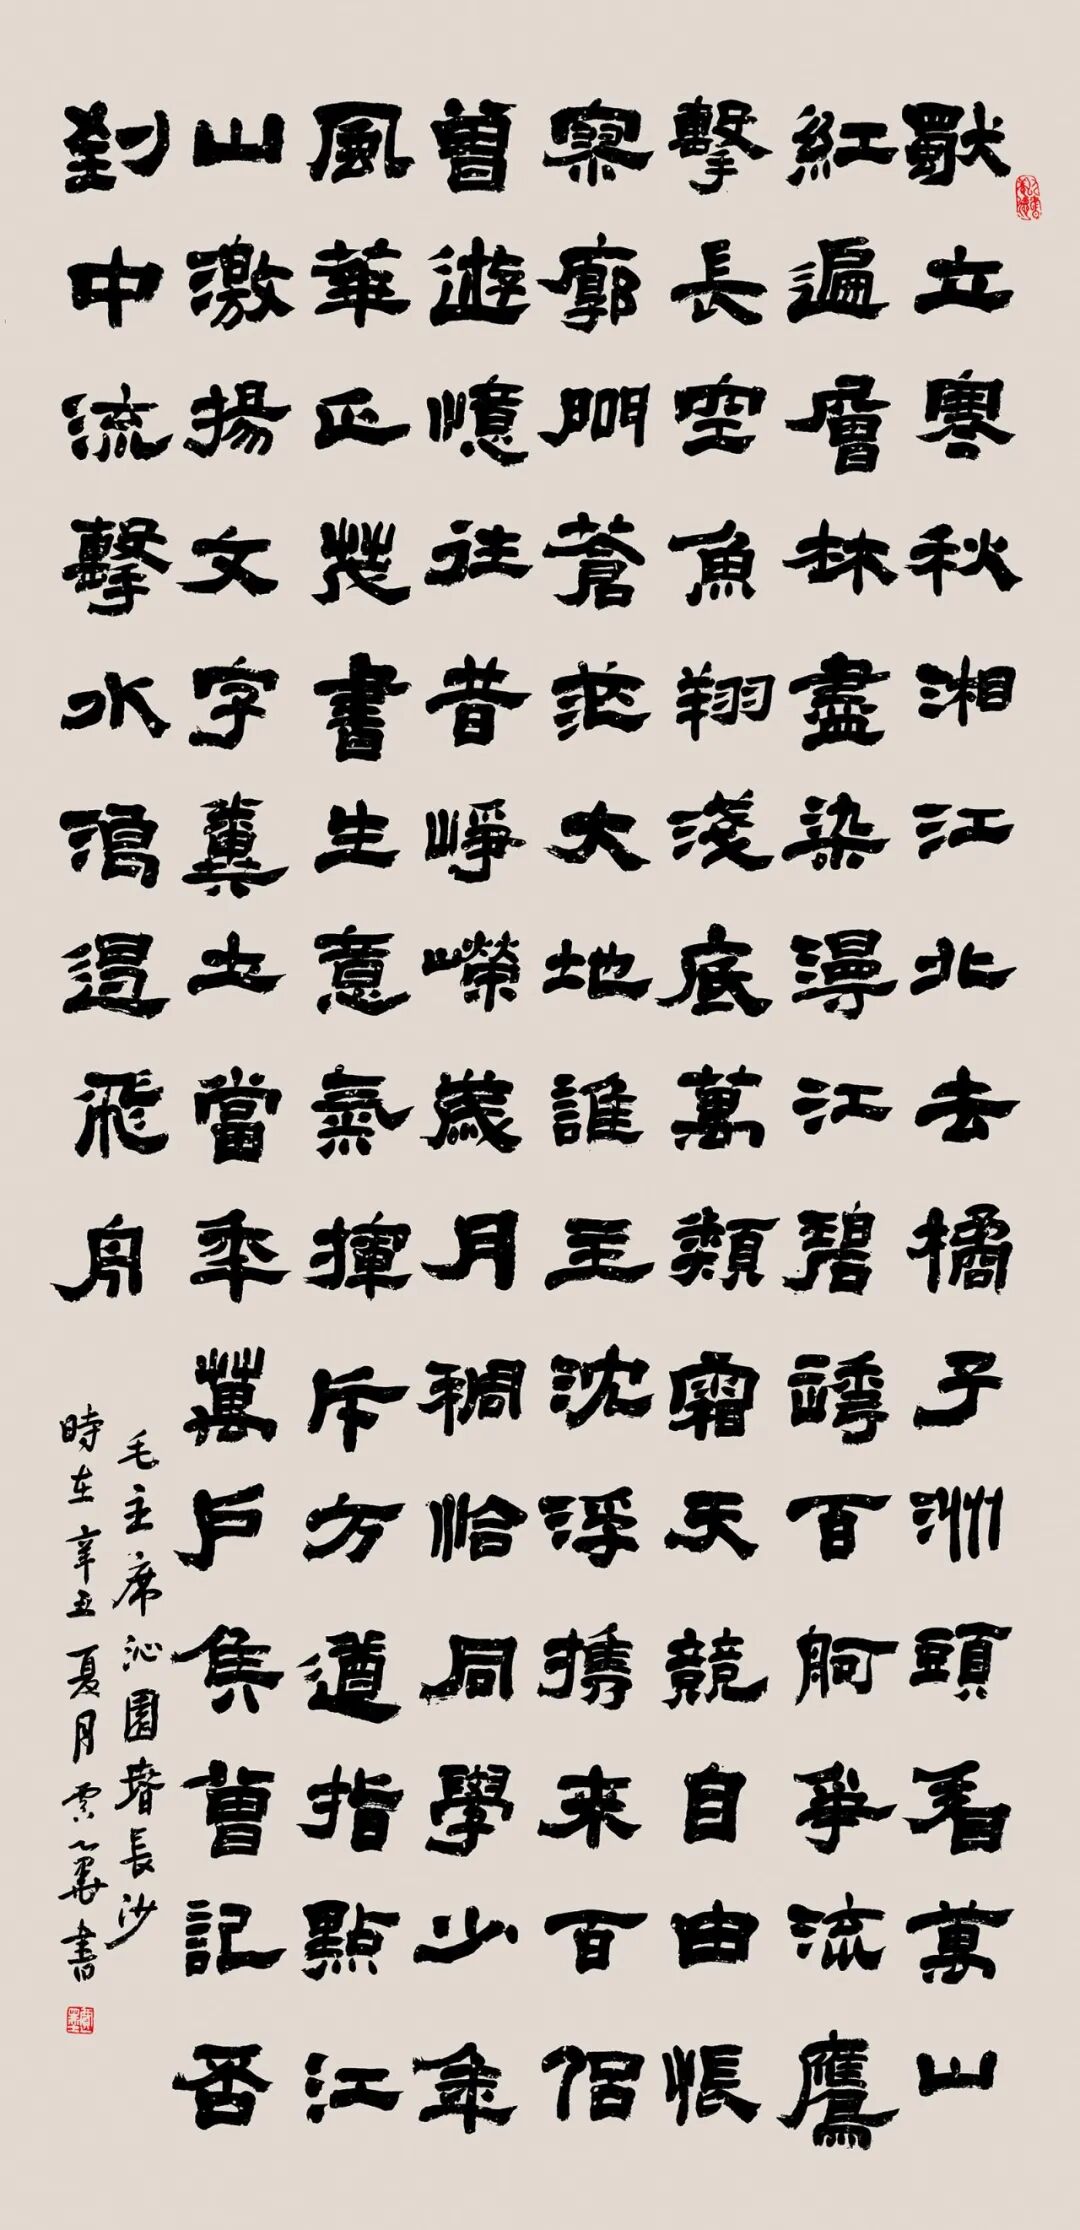 獨立寒秋湘江北去橘子洲頭看萬山
紅遍層林盡染漫江碧透百舸爭流鷹
擊長空魚翔淺底萬類霜天競自由悵
寥廓問蒼茫大地誰主沈浮携来百侣
曾遊憶往昔崢嶸歲月稠恰同學少年
風華正茂書生意氣揮斥方遒指點江
山激揚文字糞土當年萬戶侯曾記否
到中流擊水浪遏飛舟
毛主席沁園春長沙
時在辛丑夏月書